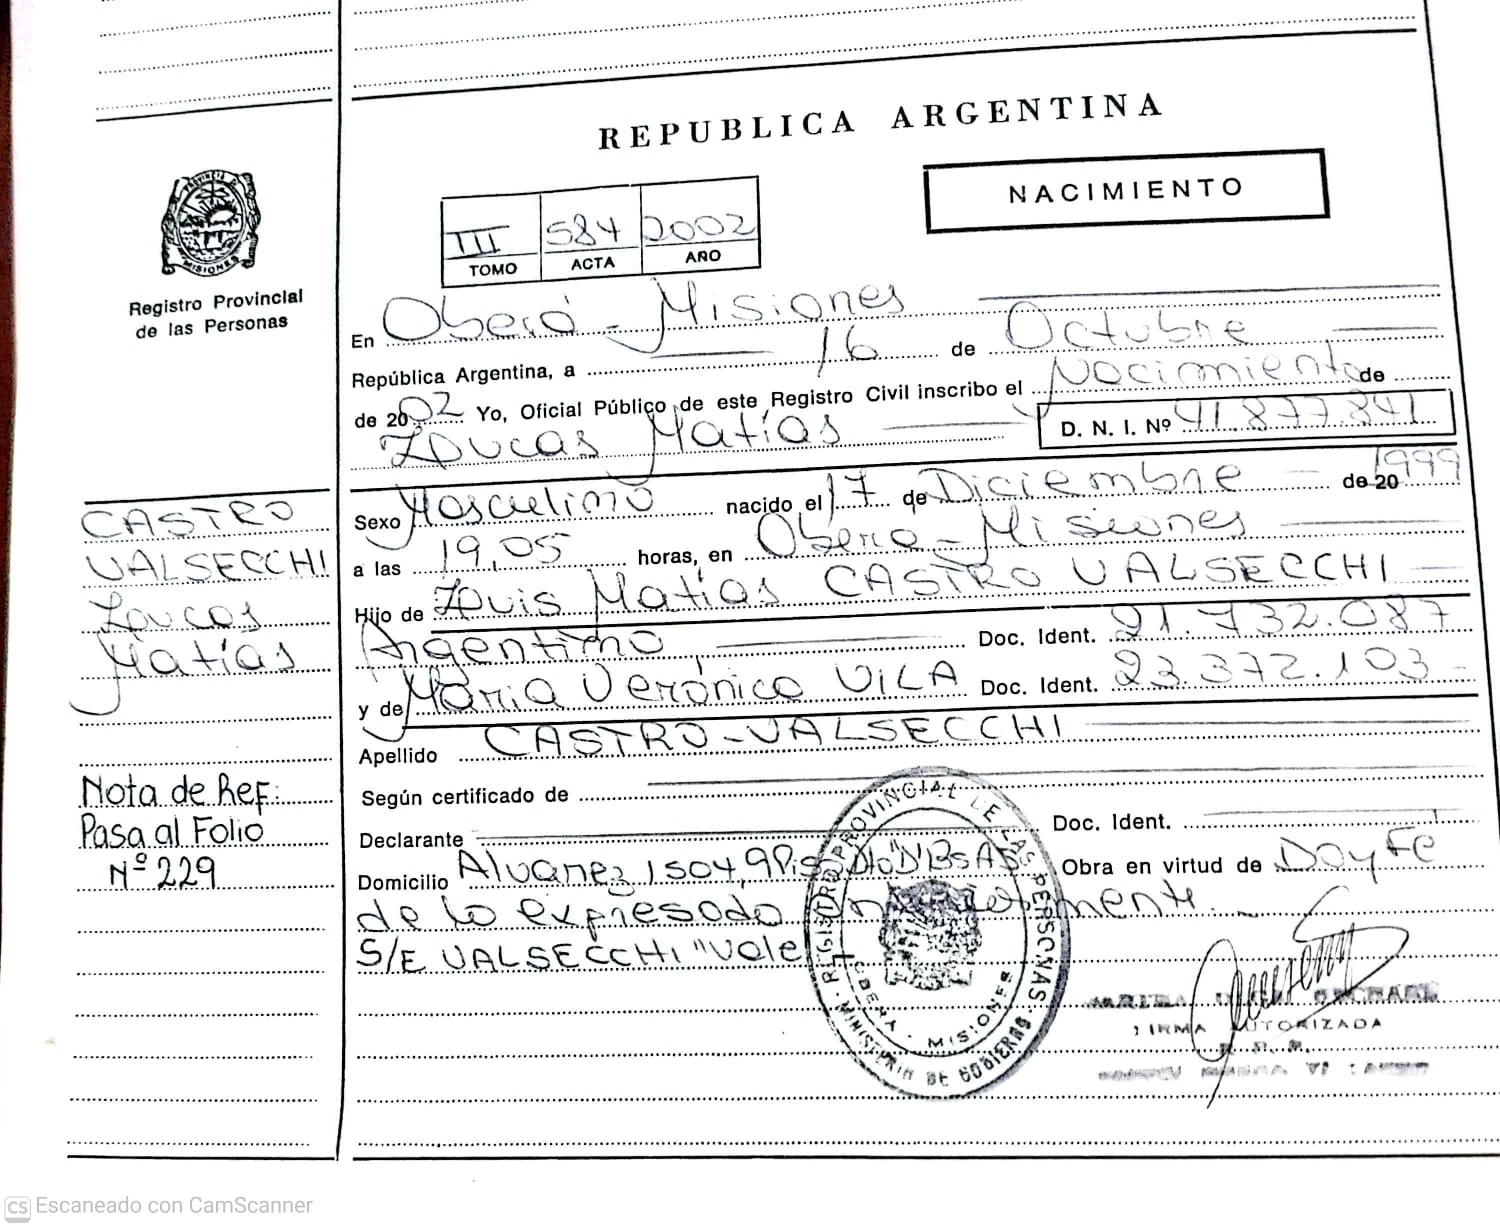 REPUBLICA ARGENTINA
NACIMIENTO
III 584 2002
TOMO ACTA AÑO
PROVINCIA DE MISIONES
Registro Provincial
de las Personas
En Oberá - Misiones
República Argentina, a 16 de Octubre
de 2002 Yo, Oficial Público de este Registro Civil inscribo el Nacimiento de
Loucas Matías D. N. I. Nº 41.877.841
Sexo Masculino nacido el 17 de Diciembre de 20 1999
a las 19,05 horas, en Oberá - Misiones
Hijo de Louis Matías CASTRO VALSECCHI
Argentino Doc. Ident. 21.732.087
y de María Verónica VILA Doc. Ident. 23.372.103
Apellido CASTRO-VALSECCHI
Según certificado de
Declarante Doc. Ident.
Domicilio Alvarez 1504, 9 Piso Dto "D" Bs As Obra en virtud de Doy Fe
de lo expresado
S/E VALSECCHI "Vale
CASTRO
VALSECCHI
Loucas
Matías
Nota de Ref:
Pasa al Folio
Nº 229
REGISTRO PROVINCIAL DE LAS PERSONAS · MINISTERIO DE GOBIERNO
OBERA - MISIONES
FIRMA AUTORIZADA
CS Escaneado con CamScanner